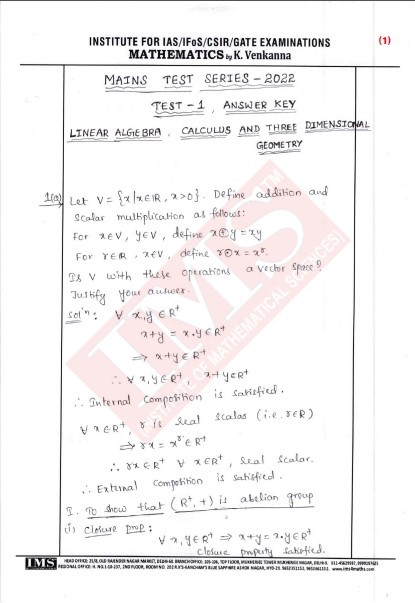 INSTITUTE FOR IAS/IFoS/CSIR/GATE EXAMINATIONS
(1)
MATHEMATICS by K. Venkanna
MAINS TEST SERIES - 2022
TEST - 1, ANSWER KEY
LINEAR ALGEBRA, CALCULUS AND THREE DIMENSIONAL
GEOMETRY
1(a) Let V = {x | x∈ℝ, x>0}. Define addition and
scalar multiplication as follows:
For x∈V, y∈V, define x⊕y = xy
For r∈ℝ, x∈V, define r⊙x = xʳ.
Is V with these operations a vector space?
Justify your answer.
Solⁿ: ∀ x,y ∈ R⁺
x+y = x·y ∈ R⁺
⇒ x+y ∈ R⁺
∴ ∀ x,y ∈ R⁺, x+y ∈ R⁺
∴ Internal composition is satisfied.
∀ x∈R⁺, r is real scalar (i.e. r∈R)
⇒ rx = xʳ ∈ R⁺
∴ rx ∈ R⁺ ∀ x∈R⁺, real scalar.
∴ External composition is satisfied.
I. To show that (R⁺, +) is abelian group
(i) Closure prop:
∀ x,y ∈ R⁺ ⇒ x+y = x·y ∈ R⁺
Closure property satisfied.
IMS
HEAD OFFICE: 25/8, OLD RAJENDER NAGAR MARKET, DELHI-60. BRANCH OFFICE: 105-106, TOP FLOOR, MUKHERJEE TOWER MUKHERJEE NAGAR, DELHI-9.
REGIONAL OFFICE: H. NO. 1-10-237, 2ND FLOOR, ROOM NO. 202 R.K'S-KANCHAM'S BLUE SAPPHIRE ASHOK NAGAR, HYD-20. www.ims4maths.com
IMS
INSTITUTE OF MATHEMATICAL SCIENCES